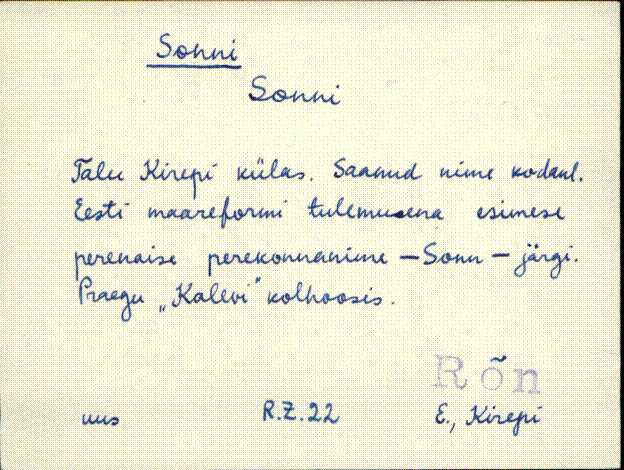 Sonni
Sonni
Talu Kirepi külas. Saanud nime kodanl.
Eesti maareformi tulemusena esimese
perenaise perekonnanime – Sonn – järgi.
Praegu „Kalevi" kolhoosis.
Rõn
uus R.Z.22 E., Kirepi